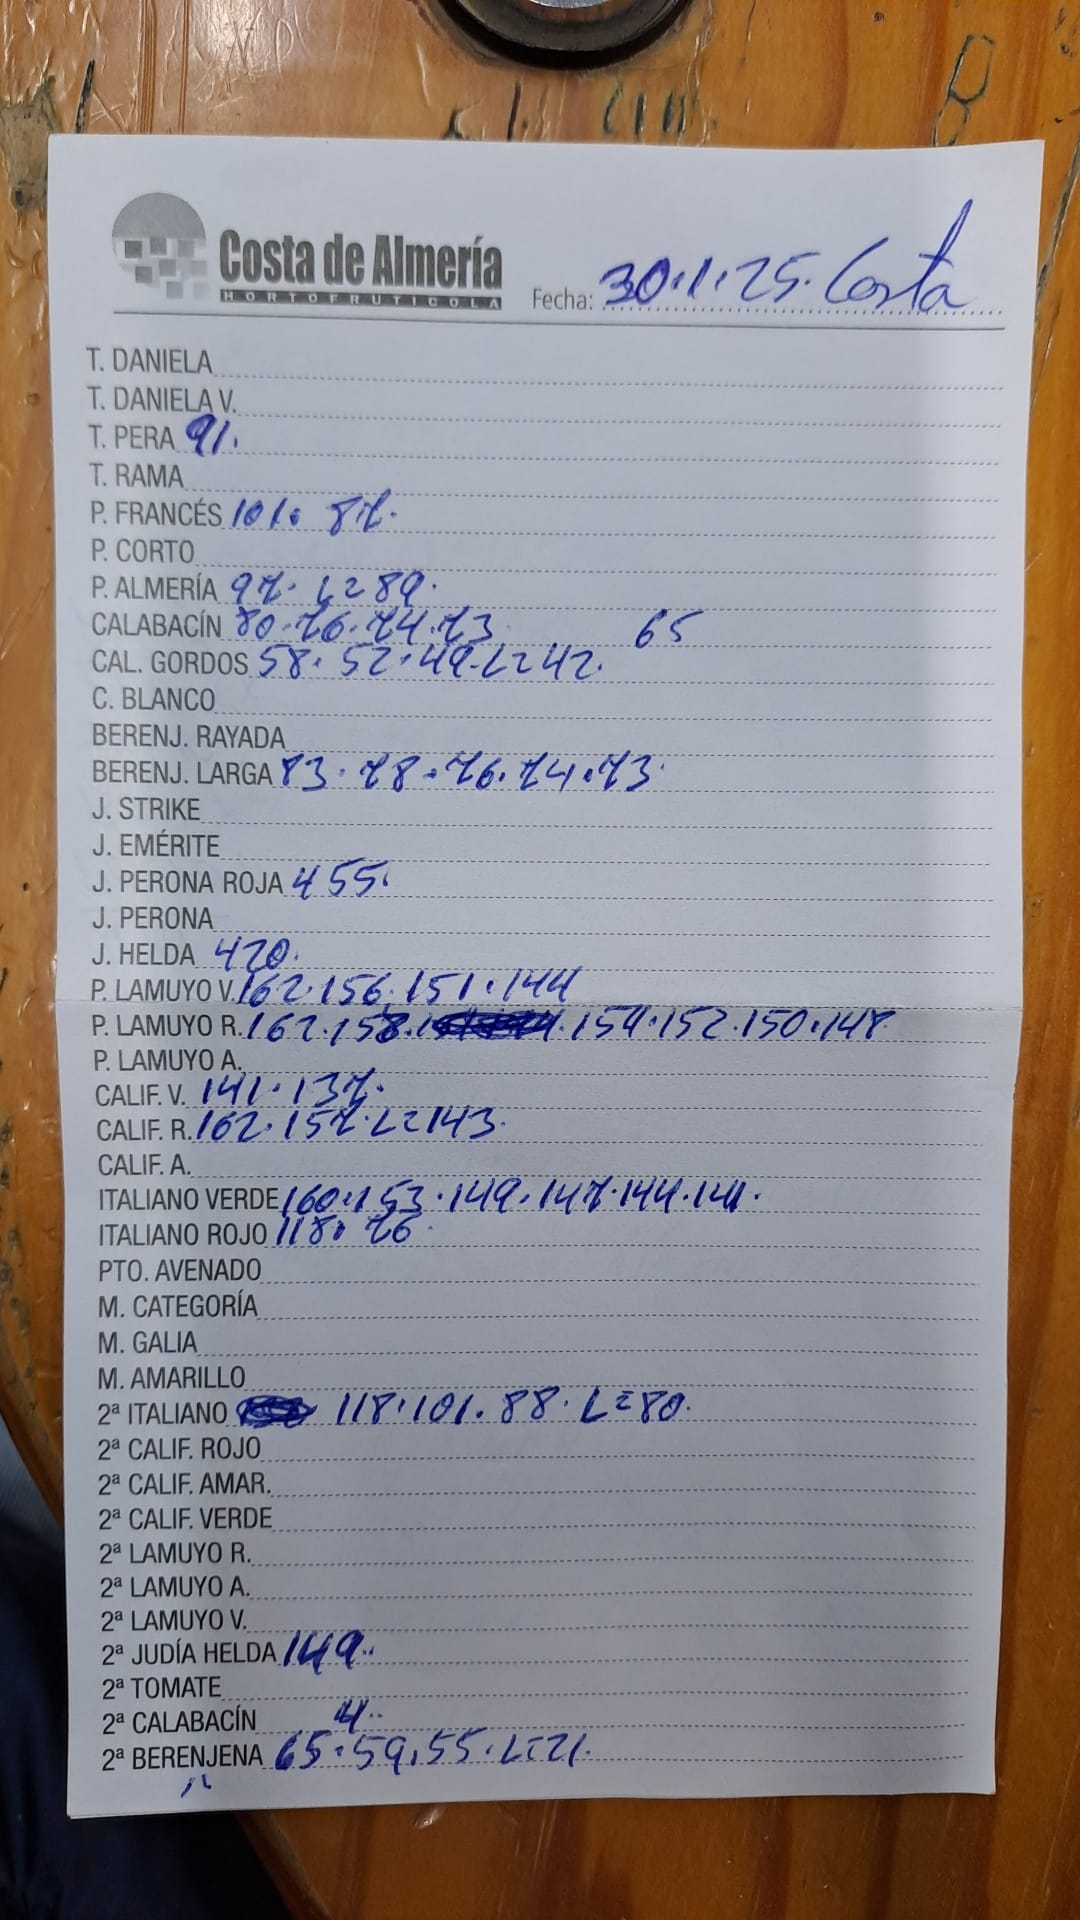 Costa de Almería
HORTOFRUTICOLA
Fecha: 30.1.25. Costa
T. DANIELA
T. DANIELA V.
T. PERA 91.
T. RAMA
P. FRANCÉS 101. 87.
P. CORTO
P. ALMERÍA 97. L=89.
CALABACÍN 80.76.74.73 65
CAL. GORDOS 58.52.49.L=42.
C. BLANCO
BERENJ. RAYADA
BERENJ. LARGA 83.78.76.74.73.
J. STRIKE
J. EMÉRITE
J. PERONA ROJA 455.
J. PERONA
J. HELDA 420.
P. LAMUYO V. 162.156.151.144
P. LAMUYO R. 162.158. 154.152.150.148
P. LAMUYO A.
CALIF. V. 141.137.
CALIF. R. 162.157.L=143.
CALIF. A.
ITALIANO VERDE 160.153.149.147.144.141.
ITALIANO ROJO 118. 76.
PTO. AVENADO
M. CATEGORÍA
M. GALIA
M. AMARILLO
2ª ITALIANO 118.101.88.L=80.
2ª CALIF. ROJO
2ª CALIF. AMAR.
2ª CALIF. VERDE
2ª LAMUYO R.
2ª LAMUYO A.
2ª LAMUYO V.
2ª JUDÍA HELDA 149..
2ª TOMATE
2ª CALABACÍN 4..
2ª BERENJENA 65.59.55.L=21.